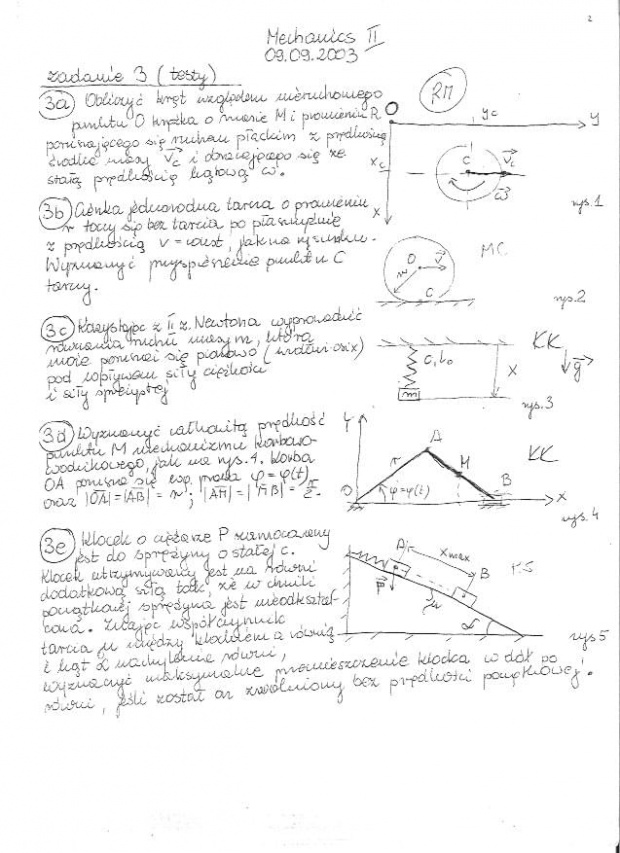 2
Mechanics II
09.09.2003
zadanie 3 (testy)
3a) Obliczyć kręt względem nieruchomego
punktu O krążka o masie M i promieniu R
poruszającego się ruchem płaskim z prędkością
środka masy Vc i obracającego się ze
stałą prędkością kątową ω.
RM
O
yc
y
xc
C
Vc
ω
x
rys.1
3b) Cienka jednorodna tarcza o promieniu
r toczy się bez tarcia po płaszczyźnie
z prędkością v = const, jak na rysunku.
Wyznaczyć przyspieszenie punktu C
tarczy.
MC
O
V
r
C
rys.2
3c) Korzystając z II z. Newtona wyprowadzić
równania ruchu masy m, która
może poruszać się pionowo (wzdłuż osi x)
pod wpływem siły ciężkości
i siły sprężystej
KK
C, l0
x
g
m
rys.3
3d) Wyznaczyć całkowitą prędkość
punktu M mechanizmu korbowo-
wodzikowego, jak na rys.4. Korba
OA porusza się wg. prawa φ=φ(t)
oraz |OA|=|AB|=r; |AM|=|MB|=r/2.
KK
Y
A
r
M
B
O
φ=φ(t)
x
rys.4
3e) Klocek o ciężarze P zamocowany
jest do sprężyny o stałej c.
Klocek utrzymywany jest na równi
dodatkową siłą tak, że w chwili
początkowej sprężyna jest nieodkształ-
cona. Znając współczynnik
tarcia μ między klockiem a równią
i kąt α nachylenia równi,
wyznaczyć maksymalne przemieszczenie klocka w dół po
równi, jeśli został on zwolniony bez prędkości początkowej.
A
xmax
B
P
μ
α
rys5